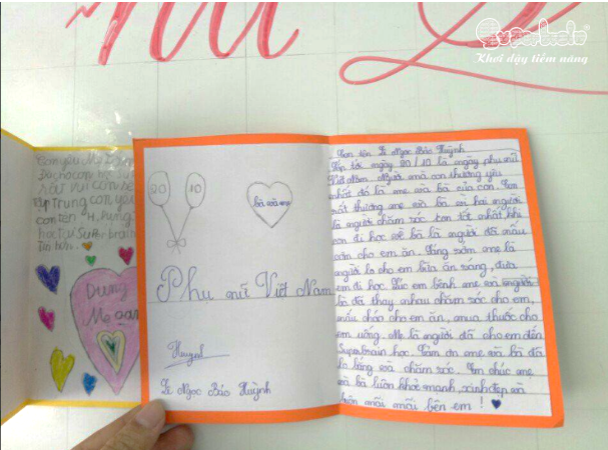 Superbrain
Khơi dậy tiềm năng
Con yêu Mẹ
tập Trung con yêu
con tên
học tại Superbrain
Tân bón.
Dung
Mẹ
20
10
bà và mẹ
Phụ nữ Việt Nam
Lê Ngọc Bảo Huỳnh
Con tên Lê Ngọc Bảo Huỳnh
Sắp tới ngày 20/10 là ngày phụ nữ
Việt Nam. Người mà con thương yêu
nhất đó là mẹ và bà của con. Con
rất thương mẹ và bà vì hai người
là người chăm sóc con tốt nhất khi
con đi học về bà là người đã nấu
cơm cho em ăn. Sáng sớm mẹ là
người lo cho em bữa ăn sáng, đưa
em đi học. Lúc em bệnh mẹ và
bà đã thay nhau chăm sóc cho em,
nấu cháo cho em ăn, mua thuốc cho
em uống. Mẹ là người đã cho em đến
Superbrain học. Cảm ơn mẹ và bà đã
lo lắng và chăm sóc. Em chúc mẹ
và bà luôn khoẻ mạnh, xinh đẹp và
luôn mãi mãi bên em !